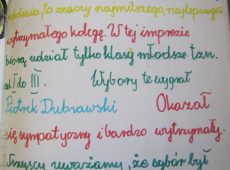 to znaczy najmilszego, najlepszego
wytrzymałego kolegę. W tej imprezie
biorą udział tylko klasy młodsze tzn.
od I do III. Wybory te wygrał
Piotrek Dubrawski Okazał
się sympatyczny i bardzo wytrzymały.
Wszyscy uważamy, że wybór był